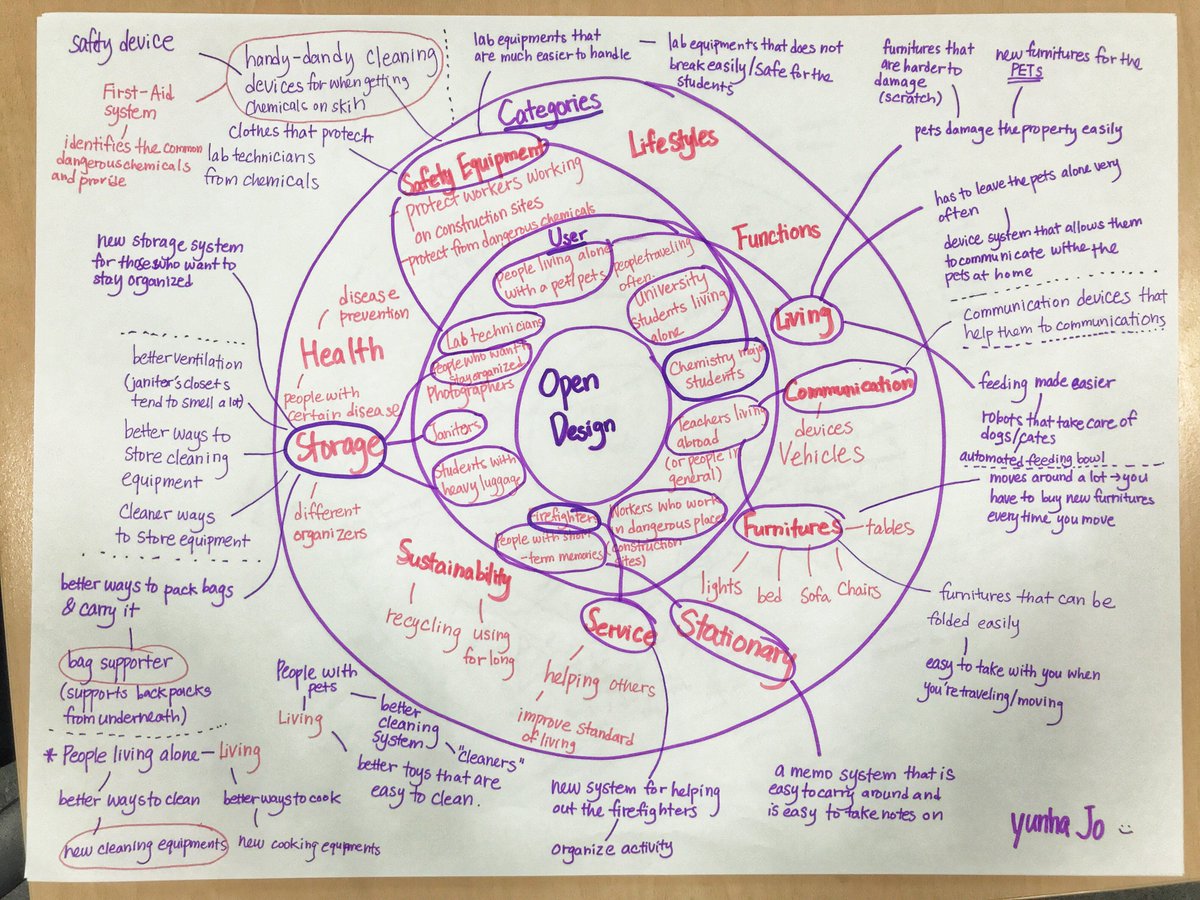 safety device
handy-dandy cleaning
devices for when getting
chemicals on skin
First-Aid
system
identifies the common
dangerous chemicals
and provide
clothes that protect
lab technicians
from chemicals
lab equipments that
are much easier to handle
lab equipments that does not
break easily/safe for the
students
furnitures that
are harder to
damage
(scratch)
new furnitures for the
PETs
pets damage the property easily
has to leave the pets alone very
often
device system that allows them
to communicate withe the
pets at home
communication devices that
help them to communications
feeding made easier
robots that take care of
dogs/cates
automated feeding bowl
moves around a lot → you
have to buy new furnitures
everytime you move
furnitures that can be
folded easily
easy to take with you when
you're traveling/moving
Categories
Lifestyles
Functions
Safety Equipment
- protect workers working
on construction sites
- protect from dangerous chemicals
Health
disease
prevention
people with
certain disease
Storage
different
organizers
Sustainability
recycling
using
for long
Service
helping others
improve standard
of living
Stationary
Furnitures
tables
lights
bed
Sofa
Chairs
Communication
devices
Vehicles
Living
User
People living alone
with a pet/pets
people traveling
often
University
Students living
alone
Chemistry major
students
Teachers living
abroad
(or people in
general)
Workers who work
in dangerous place
(construction
sites)
Firefighters
People with short
-term memories
Students with
heavy luggage
Janitors
Photographers
People who want to
stay organized
Lab technicians
Open
Design
new storage system
for those who want to
stay organized
better ventilation
(janitor's closets
tend to smell a lot)
better ways to
store cleaning
equipment
Cleaner ways
to store equipment
better ways to pack bags
& carry it
bag supporter
(supports backpacks
from underneath)
* People living alone — Living
better ways to clean
better ways to cook
new cleaning equipments
new cooking equipments
People with
pets
Living
better
cleaning
system
"cleaners"
better toys that are
easy to clean.
new system for helping
out the firefighters
organize activity
a memo system that is
easy to carry around and
is easy to take notes on
yunha Jo